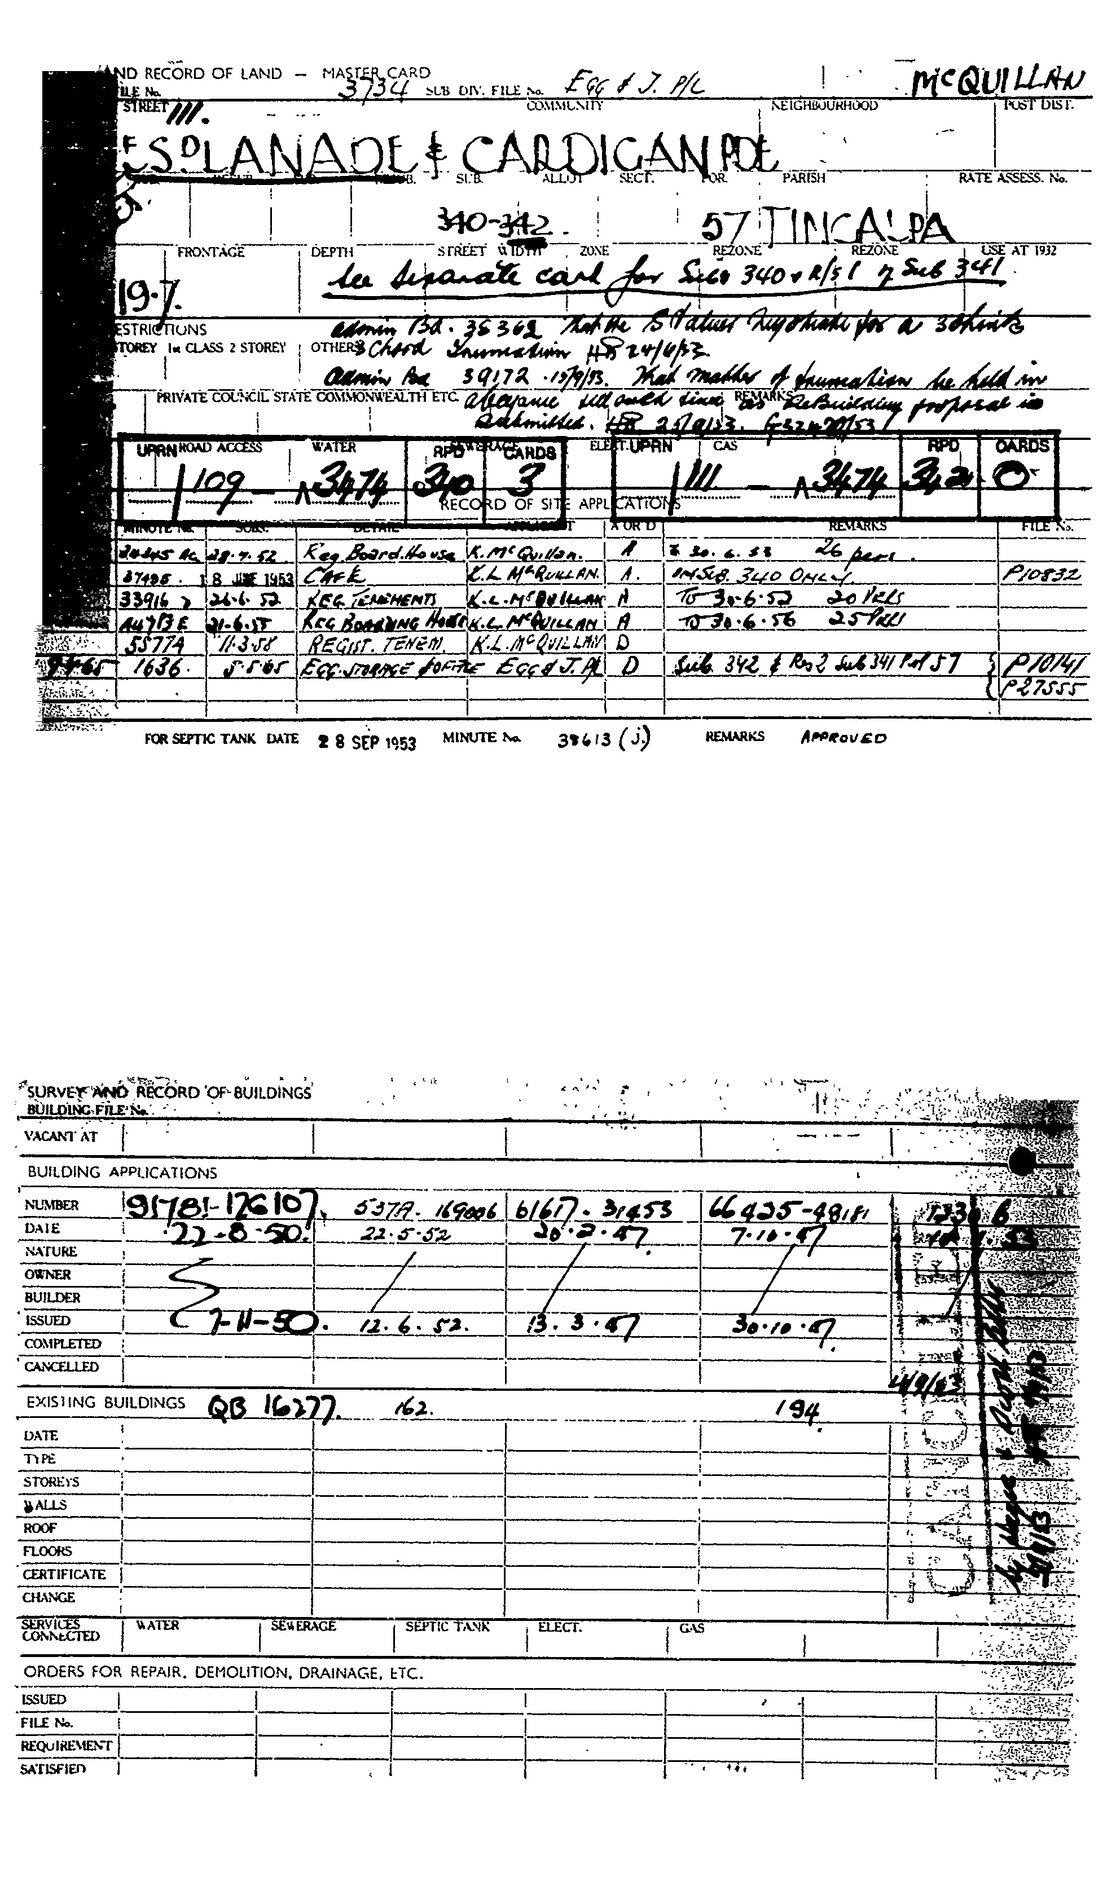 AND RECORD OF LAND — MASTER CARD
ILE No. 3734 SUB DIV. FILE No. EGG & J. P/L McQUILLAN
STREET 111. COMMUNITY NEIGHBOURHOOD POST DIST.
ESPLANADE & CARDIGAN PDE
SUB. ALLOT SECT. POR. PARISH RATE ASSESS. No.
340-342. 57 TINGALPA
FRONTAGE DEPTH STREET WIDTH ZONE REZONE REZONE USE AT 1932
See separate card for Subs 340 & R/S 1 of Sub 341.
19.7.
ESTRICTIONS admin Bd. 35362 That the Values Negotiate for a 3
STOREY 1st CLASS 2 STOREY OTHERS 3 Chord Truncation HB 24/6/53.
Admin 39172 . 15/9/53. That matter of truncation be held in
PRIVATE COUNCIL STATE COMMONWEALTH ETC. abeyance until such time as ReBuilding proposal is REMARKS
submitted. HB 25/9/53.
UPRN ROAD ACCESS WATER RPD SEWERAGE CARDS ELECT. UPRN GAS RPD CARDS
109 — A 3474 340 3 111 — A 3474 342 0
RECORD OF SITE APPLICATIONS
MINUTE No. SUBS. DETAIL APPLICANT A OR D REMARKS FILE No.
28.7.52 Reg Board.House K. McQuillan. A 30.6.53 26 pers.
37495. 18 JUNE 1953 CAFE K.L McQUILLAN. A. ON SUB. 340 ONLY P10832
33916 26.6.52 REG. TENEMENTS K.L. McQUILLAN A TO 30.6.52 20 PERS
A47B E 21.6.55 REG BOARDING HOUSE K.L. McQUILLAN A TO 30.6.56 25 PERS
5577A 11.3.58 REGIST. TENEM. K.L. McQUILLAN D
1636. 5.5.65 EGG STORAGE & OFFICE EGG & J. P/L D Sub. 342 & Res 2 Sub 341 Por 57 P10141
P27555
FOR SEPTIC TANK DATE 28 SEP 1953 MINUTE No. 38613 (J.) REMARKS APPROVED
SURVEY AND RECORD OF BUILDINGS
BUILDING FILE No.
VACANT AT
BUILDING APPLICATIONS
NUMBER 91781-176107. 537A. 169006 61617. 31453 66435-48181 1330 B
DATE 22-8-50. 22.5.52 20.2.57. 7.10.57
NATURE
OWNER
BUILDER
ISSUED 7-11-50. 12.6.52. 13.3.57 30.10.57.
COMPLETED
CANCELLED
CANCELLED
EXISTING BUILDINGS QB 16277. 162. 194.
DATE
TYPE
STOREYS
WALLS
ROOF
FLOORS
CERTIFICATE
CHANGE
SERVICES CONNECTED WATER SEWERAGE SEPTIC TANK ELECT. GAS
ORDERS FOR REPAIR, DEMOLITION, DRAINAGE, ETC.
ISSUED
FILE No.
REQUIREMENT
SATISFIED